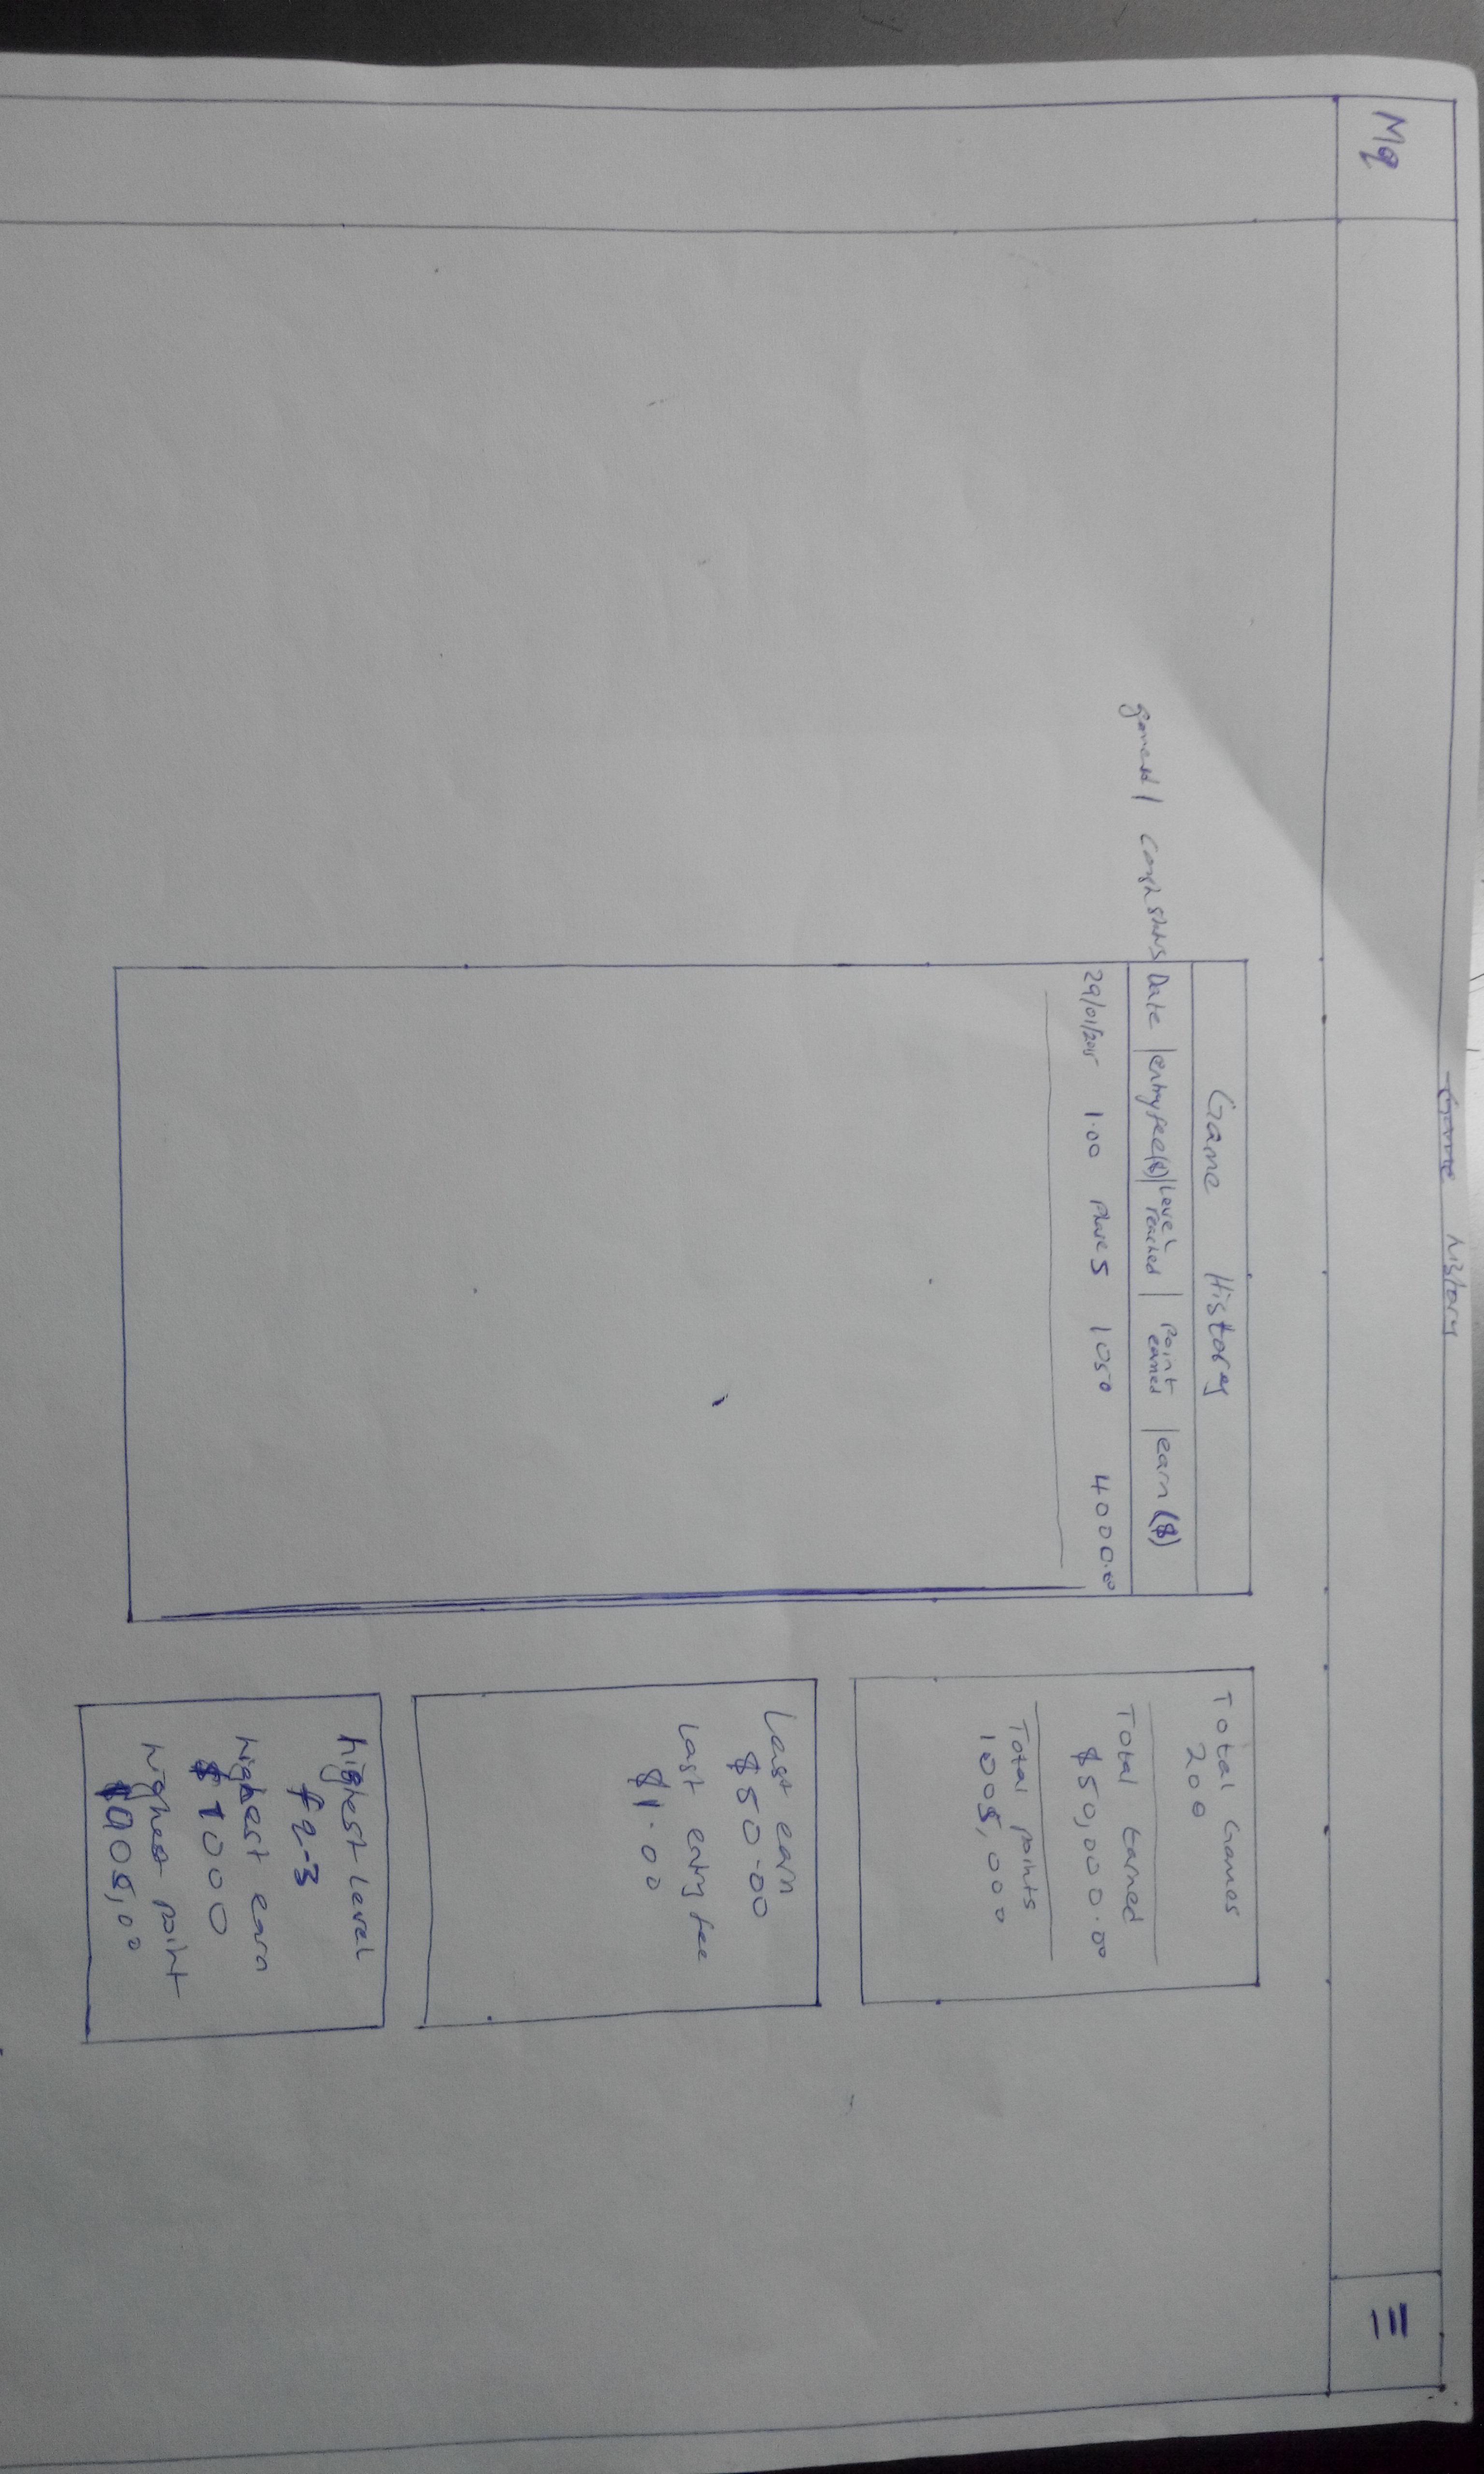 Game History
Mq
Game History
Date entry fee($) Level reached Point earned earn ($)
29/01/2015 1.00 phase 5 1050 4000.00
Total Games
200
Total Earned
$50,000.00
Total points
1005,000
Last earn
$50.00
Last entry fee
$1.00
highest Level
fq-3
highest earn
$1000
highest point